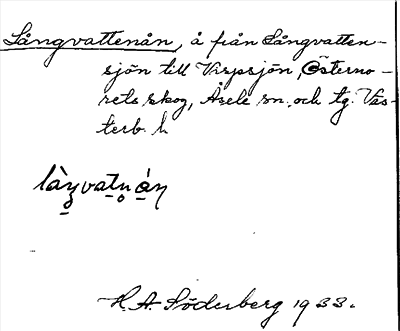 Långvattenån, å från Långvatten-
sjön till Vispsjön, Österno-
rets skog, Åsele sn. och tg. Väs-
terb. l.
H. A. Söderberg 1933.